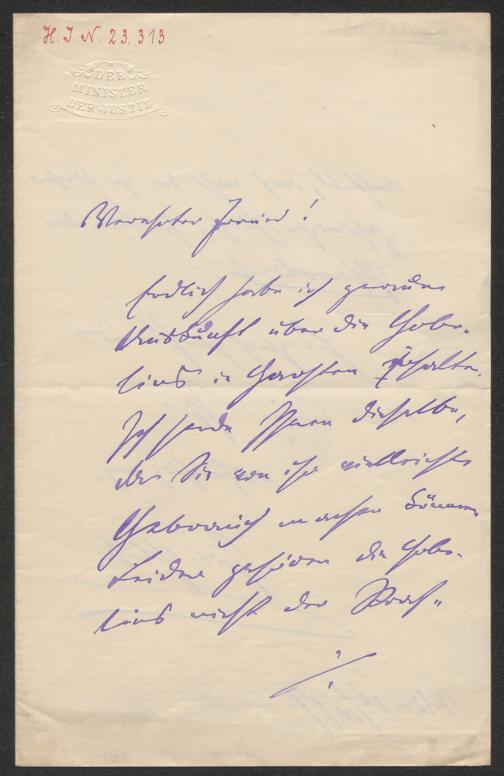 H. I. N. 23.313
DER
MINISTER
DER JUSTIZ
Verehrter Freund!
Endlich habe ich genaue
Auskunft über die Gobe-
lins in Garsten erhalten.
Ich sende Ihnen dieselbe,
da Sie von ihr vielleicht
Gebrauch machen können
Leider gehören die Gobe-
lins nicht der Straf-
./.